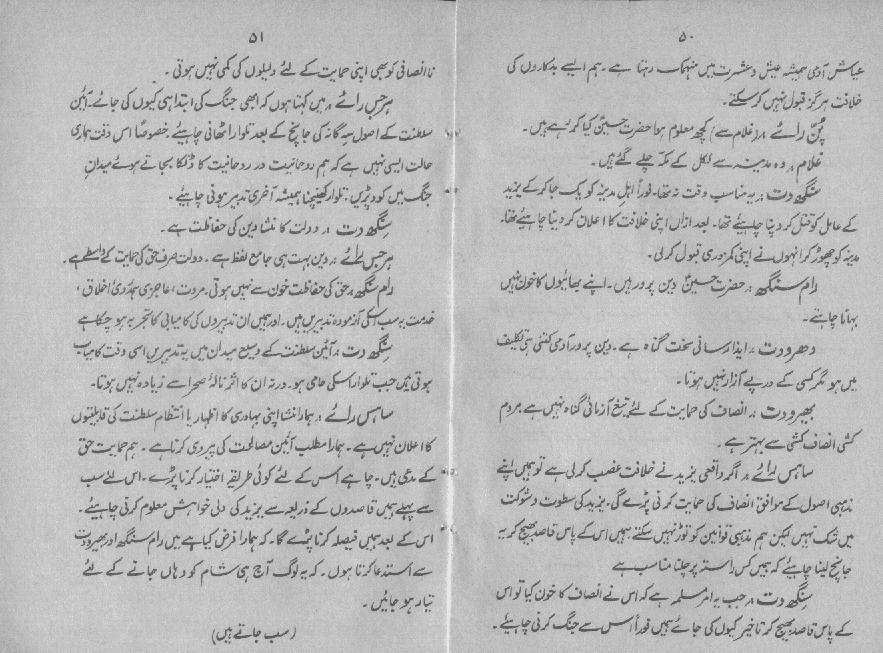 ۵۰
عیاش آدمی ہمیشہ عیش و عشرت میں منہمک رہتا ہے۔ ہم ایسے بدکاروں کی
خلافت ہرگز قبول نہیں کر سکتے۔
پُن رائے :۔ (غلام سے) کچھ معلوم ہوا حضرت حسینؑ کیا کر رہے ہیں۔
غلام :۔ وہ مدینہ سے نکل کے مکہ چلے گئے ہیں۔
سنگھ دت :۔ یہ مناسب وقت نہ تھا۔ فوراً اہل مدینہ کو یک جا کر کے یزید
کے عامل کو قتل کر دینا چاہیئے تھا۔ بعد ازاں اپنی خلافت کا اعلان کر دینا چاہیئے تھا۔
مدینہ کو چھوڑ کر انہوں نے اپنی کمزوری قبول کر لی۔
رام سنگھ :۔ حضرت حسینؑ دین پرور ہیں۔ اپنے بھائیوں کا خون نہیں
بہانا چاہتے۔
دھرودت :۔ ایذا رسانی سخت گناہ ہے۔ دین پرور آدمی کتنی ہی تکلیف
میں ہو مگر کسی کے درپے آزار نہیں ہوتا۔
بھیرودت :۔ انصاف کی حمایت کے لئے تیغ آزمائی گناہ نہیں ہے مردم
کشی انصاف کشی سے بہتر ہے۔
ساہس رائے :۔ اگر واقعی یزید نے خلافت غصب کر لی ہے تو ہمیں اپنے
مذہبی اصول کے موافق انصاف کی حمایت کرنی پڑے گی۔ یزید کی سطوت و شوکت
میں شک نہیں لیکن ہم مذہبی قوانین کو توڑ نہیں سکتے ہمیں اس کے پاس قاصد بھیج کر یہ
جانچ لینا چاہیئے کہ ہمیں کس راستہ پر چلنا مناسب ہے
سنگھ دت :۔ جب یہ امر مسلمہ ہے کہ اس نے انصاف کا خون کیا تو اس
کے پاس قاصد بھیج کر تاخیر کیوں کی جائے ہمیں فوراً اس سے جنگ کرنی چاہیئے۔
۵۱
نا انصافی کو بھی اپنی حمایت کے لئے دلیلوں کی کمی نہیں ہوتی۔
ہرجس رائے :۔ میں کہتا ہوں کہ ابھی جنگ کی ابتدا ہی کیوں کی جائے۔ آئین
سلطنت کے اصول سہ گانہ کی جانچ کے بعد تلوار اٹھانی چاہیئے خصوصاً اس وقت ہماری
حالت ایسی نہیں ہے کہ ہم روحانیت در روحانیت کا ڈنکا بجاتے ہوئے میدانِ
جنگ میں کود پڑیں۔ تلوار کھینچنا ہمیشہ آخری تدبیر ہونی چاہیئے۔
سنگھ دت :۔ دولت کا منشا دین کی حفاظت ہے۔
ہرجس رائے :۔ دین بہت ہی جامع لفظ ہے۔ دولت صرف حق کی حمایت کے واسطے ہے۔
رام سنگھ :۔ حق کی حفاظت خون سے نہیں ہوتی۔ مروت، عاجزی ہمدردی اخلاق،
خدمت یہ سب اسکی آزمودہ تدبیریں ہیں۔ اور ہمیں ان تدبیروں کی کامیابی کا تجربہ ہو چکا ہے
سنگھ دت :۔ آئین سلطنت کے وسیع میدان میں یہ تدبیریں اسی وقت کامیاب
ہوتی ہیں جب تلوار اسکی حامی ہو۔ ورنہ ان کا اثر نالۂ صحرا سے زیادہ نہیں ہوتا۔
ساہس رائے :۔ ہمارا منشا اپنی بہادری کا اظہار یا انتظام سلطنت کی قابلیتوں
کا اعلان نہیں ہے۔ ہمارا مطلب آئین مصالحت کی پیروی کرنا ہے۔ ہم حمایت حق
کے مدعی ہیں۔ چاہے اس کے لئے کوئی طریقہ اختیار کرنا پڑے۔ اس لئے سب
سے پہلے ہمیں قاصدوں کے ذریعہ سے یزید کی دلی خواہش معلوم کرنی چاہیئے۔
اس کے بعد ہمیں فیصلہ کرنا پڑے گا۔ کہ ہمارا فرض کیا ہے میں رام سنگھ اور بھیرودت
سے استدعا کرتا ہوں۔ کہ یہ لوگ آج ہی شام کو وہاں جانے کے لئے
تیار ہو جائیں۔
(سب جاتے ہیں)